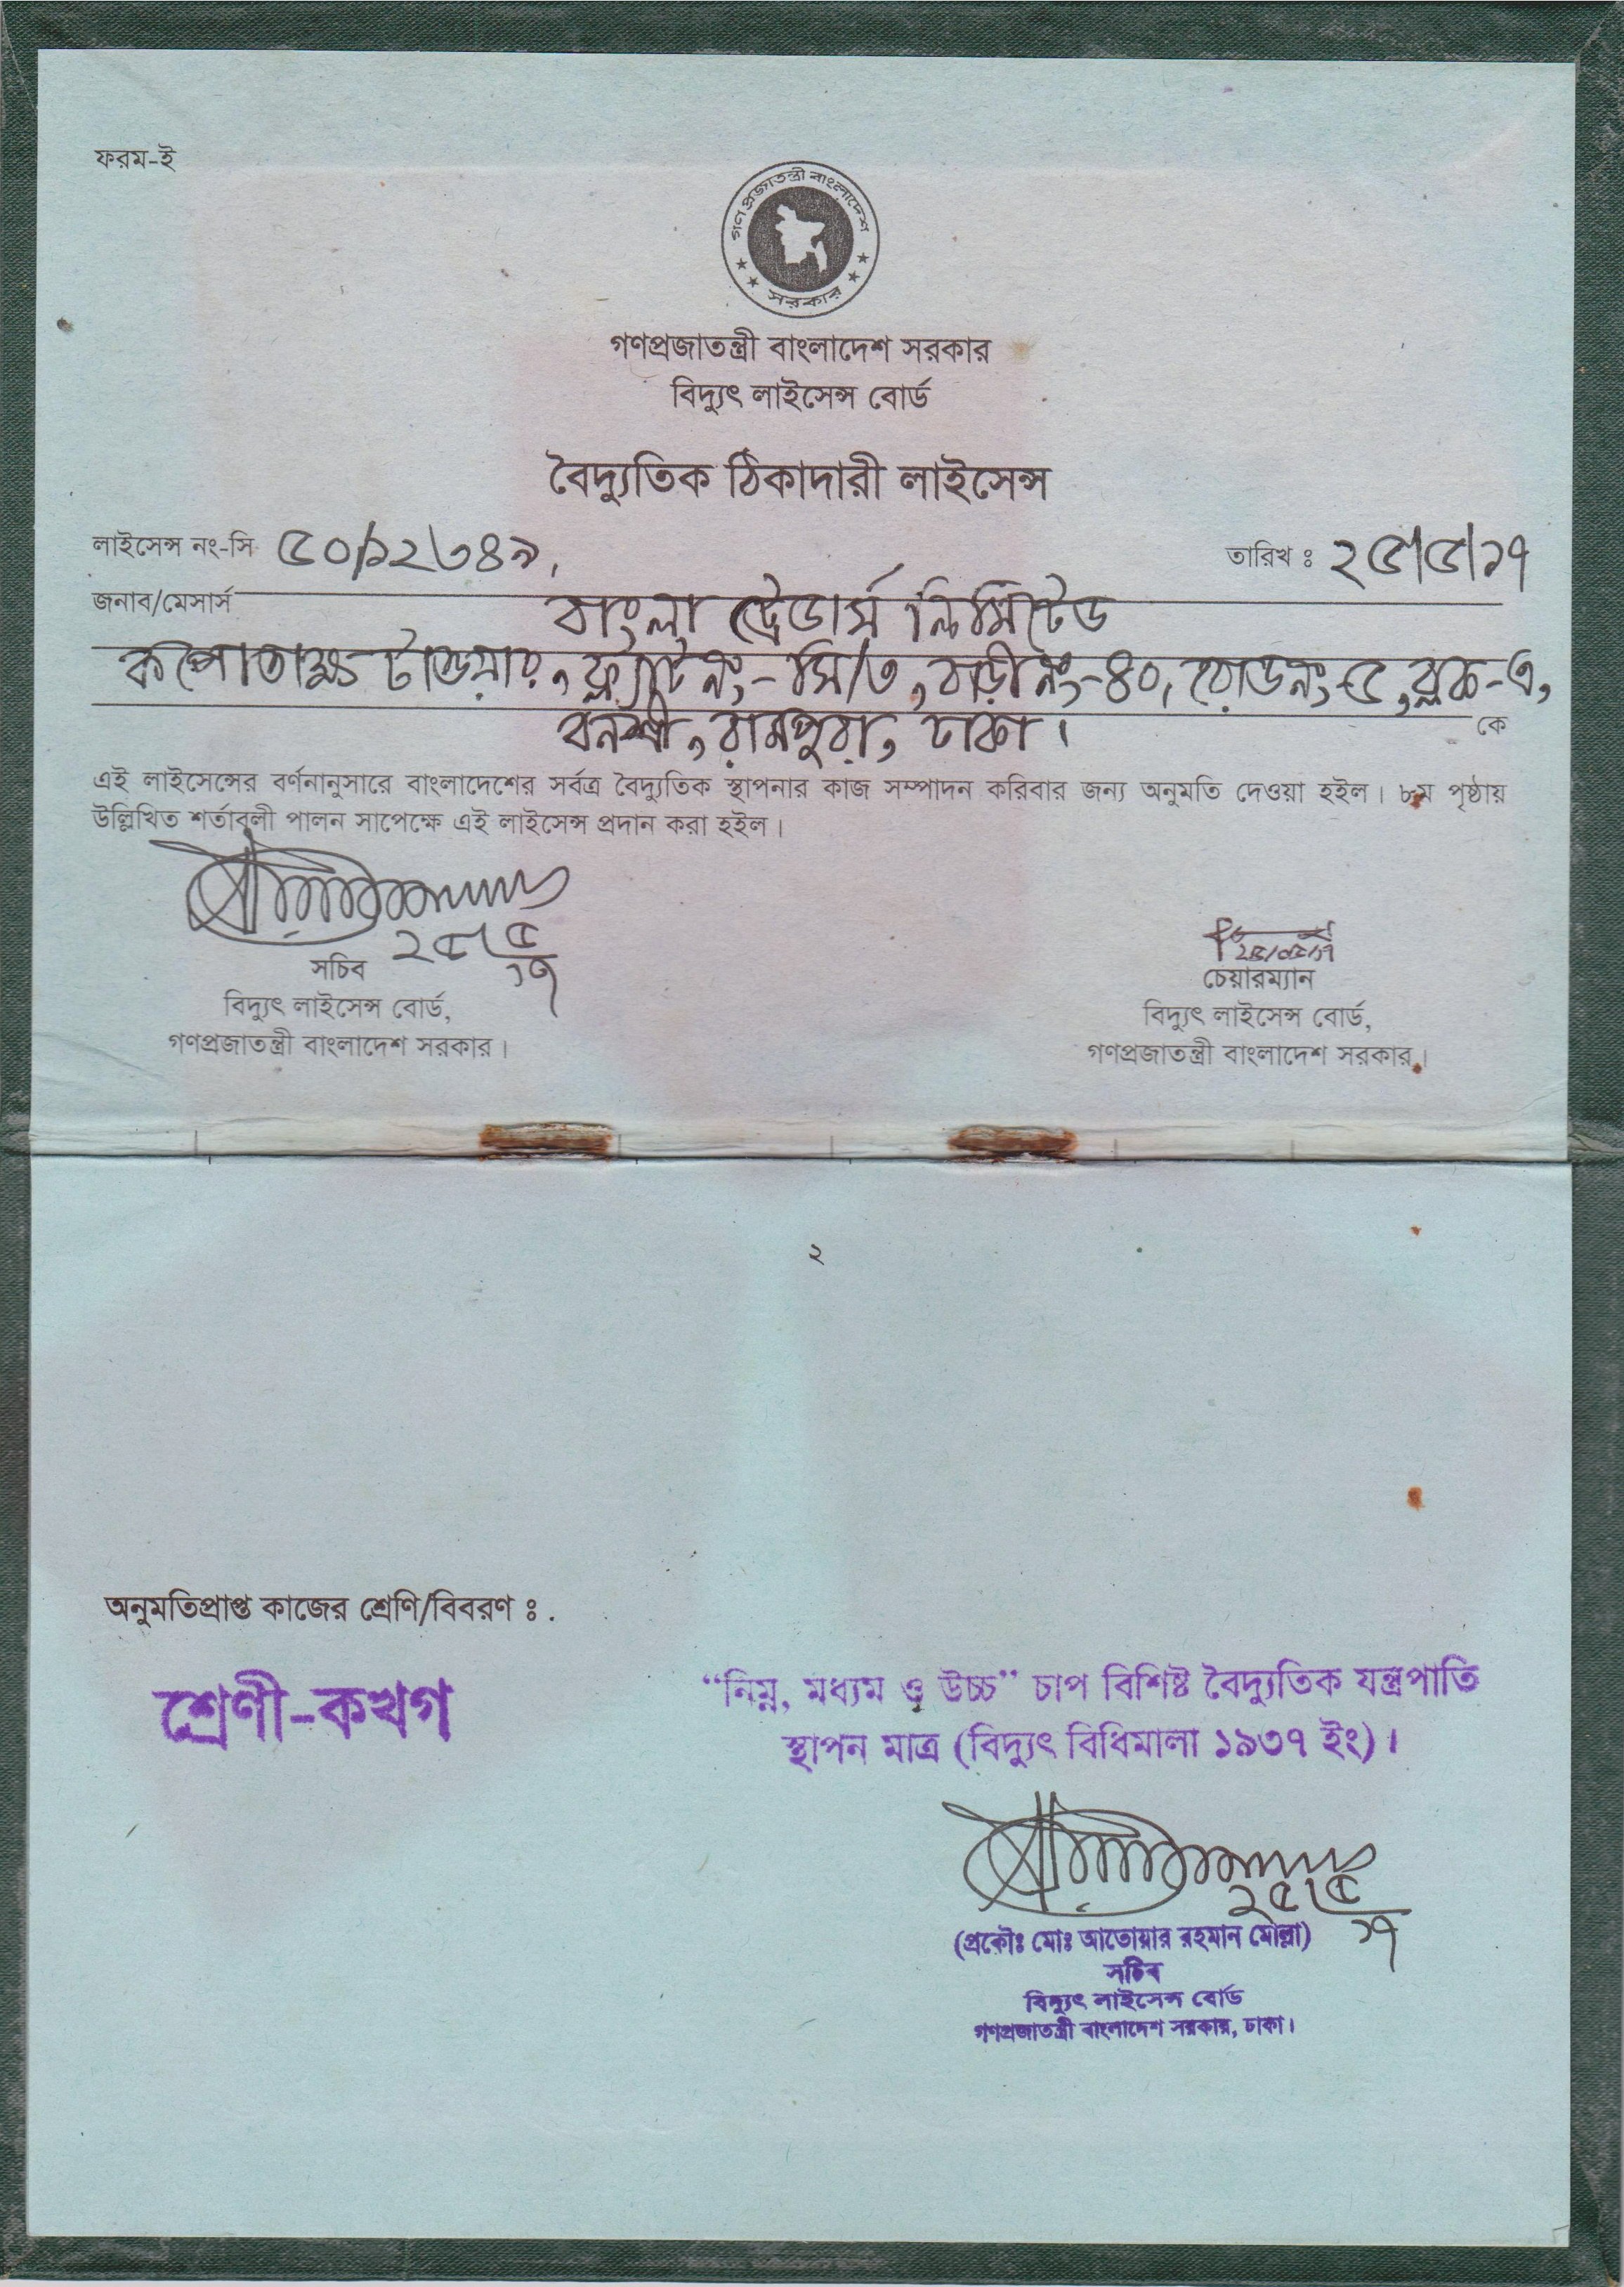 ফরম-ই
গণ প্রজাতন্ত্রী বাংলাদেশ
সরকার
গণপ্রজাতন্ত্রী বাংলাদেশ সরকার
বিদ্যুৎ লাইসেন্স বোর্ড
বৈদ্যুতিক ঠিকাদারী লাইসেন্স
লাইসেন্স নং-সি ৫০/১২৬৪৯, তারিখ ঃ ২৫/৫/১৭
জনাব/মেসার্স বাংলা ট্রেডার্স লিমিটেড
কপোতাক্ষ টাওয়ার, ফ্ল্যাট নং,- সি/৩, বাড়ী নং,-৪০, রোড নং, ৫, ব্লক-এ,
বনশ্রী, রামপুরা, ঢাকা। কে
এই লাইসেন্সের বর্ণনানুসারে বাংলাদেশের সর্বত্র বৈদ্যুতিক স্থাপনার কাজ সম্পাদন করিবার জন্য অনুমতি দেওয়া হইল। ৮ম পৃষ্ঠায়
উল্লিখিত শর্তাবলী পালন সাপেক্ষে এই লাইসেন্স প্রদান করা হইল।
২৫/৫/১৭
২৫/০৫/১৭
সচিব
চেয়ারম্যান
বিদ্যুৎ লাইসেন্স বোর্ড,
বিদ্যুৎ লাইসেন্স বোর্ড,
গণপ্রজাতন্ত্রী বাংলাদেশ সরকার।
গণপ্রজাতন্ত্রী বাংলাদেশ সরকার।
২
অনুমতিপ্রাপ্ত কাজের শ্রেণি/বিবরণ ঃ .
শ্রেণী-কখগ
“নিম্ন, মধ্যম ও উচ্চ” চাপ বিশিষ্ট বৈদ্যুতিক যন্ত্রপাতি
স্থাপন মাত্র (বিদ্যুৎ বিধিমালা ১৯৩৭ ইং)।
২৫/৫/১৭
(প্রকৌঃ মোঃ আতোয়ার রহমান মোল্লা)
সচিব
বিদ্যুৎ লাইসেন্স বোর্ড
গণপ্রজাতন্ত্রী বাংলাদেশ সরকার, ঢাকা।